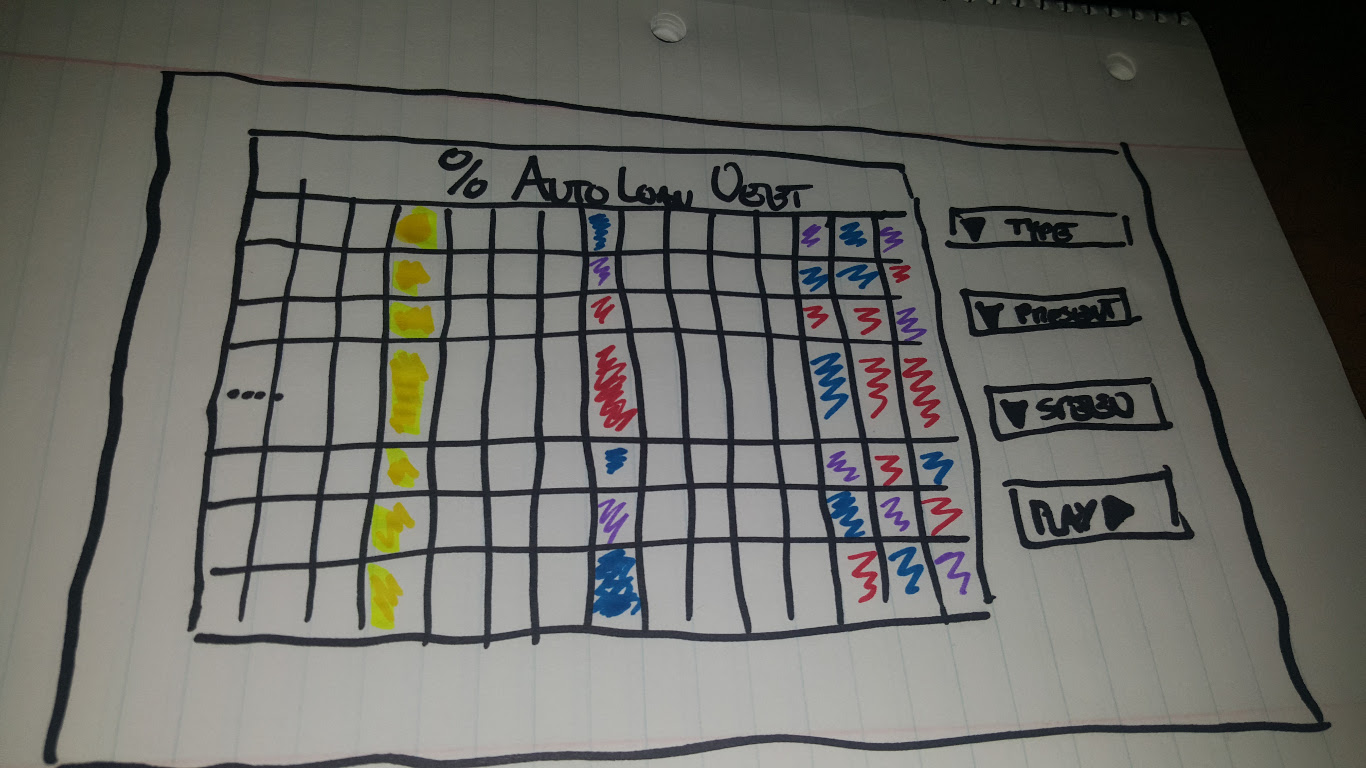 % AUTO LOAN DEBT
▼ TYPE
▼ PRESENT
....
▼ STEREO
PLAY ▶